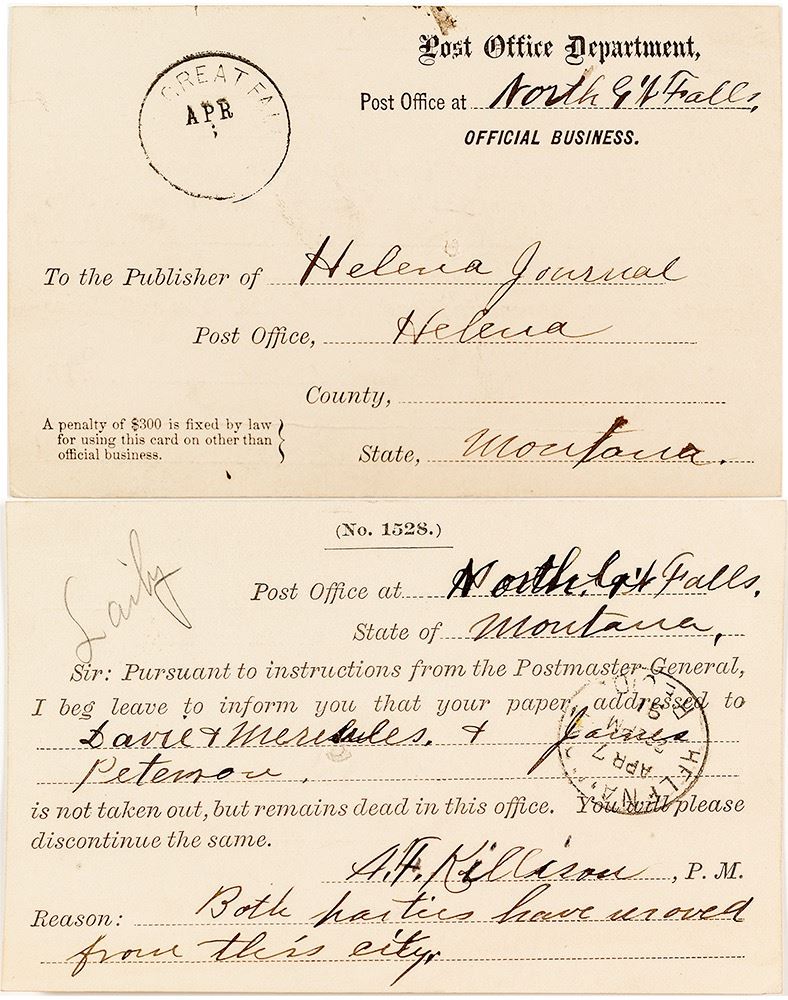 Post Office Department,
Post Office at North G't Falls,
OFFICIAL BUSINESS.
GREAT FAL
APR
To the Publisher of Helena Journal
Post Office, Helena
County,
State, Montana.
A penalty of $300 is fixed by law
for using this card on other than
official business.
(No. 1528.)
Daily
Post Office at North G't Falls,
State of Montana,
Sir: Pursuant to instructions from the Postmaster-General,
I beg leave to inform you that your paper, addressed to
Davie & &  James
Peterson,
is not taken out, but remains dead in this office. You will please
discontinue the same.
HELENA
APR 7
REC'D
, P. M.
Reason: Both parties have moved
from this city.